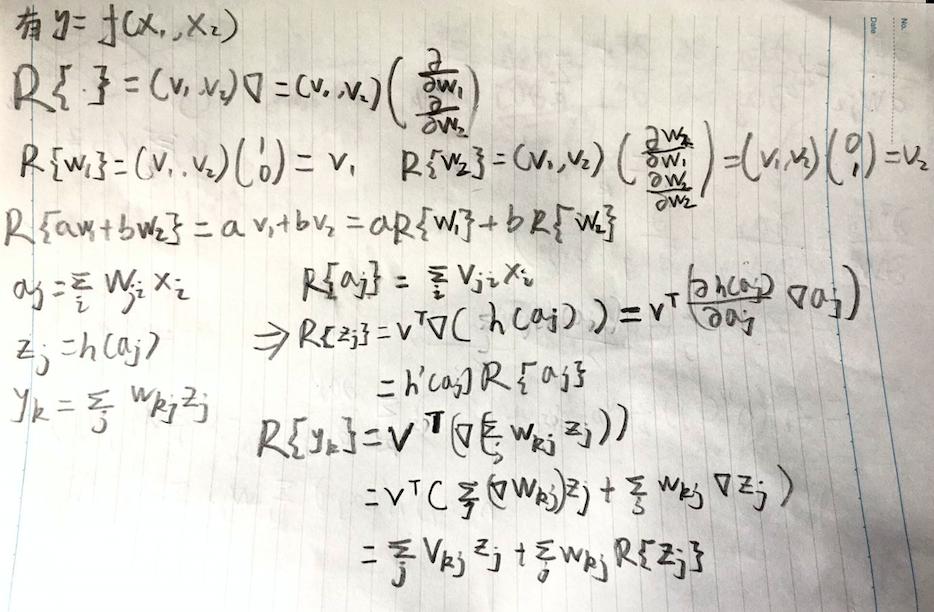 No.
Date
有 y = f(x₁, x₂)
R{·} = (v₁, v₂)∇ = (v₁, v₂)(∂/∂w₁ ∂/∂w₂)
R{w₁} = (v₁, v₂)(1 0) = v₁ R{w₂} = (v₁, v₂)(∂w₂/∂w₁ ∂w₂/∂w₂) = (v₁, v₂)(0 1) = v₂
R{aw₁+bw₂} = a v₁ + b v₂ = aR{w₁} + bR{w₂}
aⱼ = Σᵢ wⱼᵢ xᵢ R{aⱼ} = Σᵢ vⱼᵢ xᵢ
zⱼ = h(aⱼ) ⇒ R{zⱼ} = vᵀ∇(h(aⱼ)) = vᵀ(∂h(aⱼ)/∂aⱼ ∇aⱼ)
= h'(aⱼ) R{aⱼ}
yₖ = Σⱼ wₖⱼ zⱼ
R{yₖ} = vᵀ(∇(Σⱼ wₖⱼ zⱼ))
= vᵀ(Σⱼ (∇wₖⱼ)zⱼ + Σⱼ wₖⱼ ∇zⱼ)
= Σⱼ vₖⱼ zⱼ + Σⱼ wₖⱼ R{zⱼ}